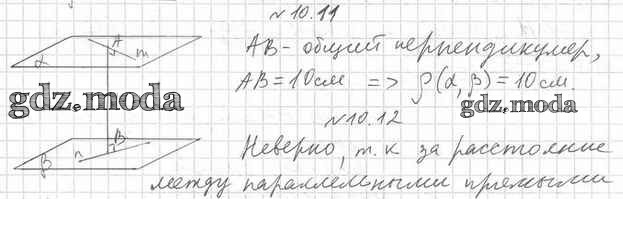 №10.11
AB - общий перпендикуляр,
AB = 10см => ρ(α, β) = 10 см.
№10.12
Неверно, т. к за расстояние
между параллельными прямыми
A
m
α
B
n
β
gdz.moda
gdz.moda